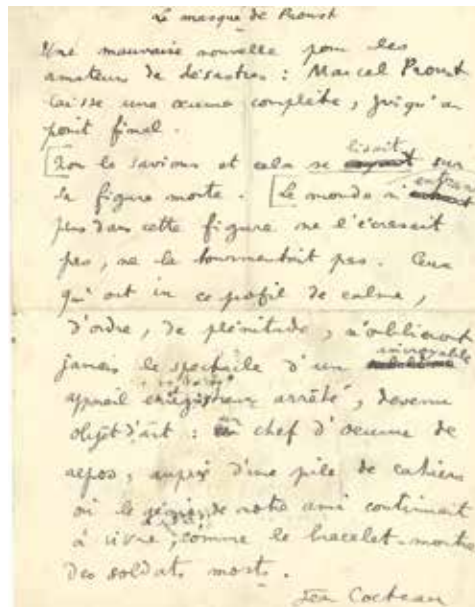 Le masque de Proust
Une mauvaise nouvelle pour les
amateurs de désastres : Marcel Proust
laisse une œuvre complète, jusqu'au
point final.
[Nous le savions et cela se lisait sur
sa figure morte. [Le monde n'entrant
plus dans cette figure ne l'écrasait
pas, ne la tourmentait pas. Ceux
qui ont vu ce profil de calme,
d'ordre, de plénitude, n'oublieront
jamais le spectacle d'un incroyable
appareil enregistreur arrêté, devenu
objet d'art : un chef d'œuvre de
repos, auprès d'une pile de cahiers
où le génie de notre ami continuait
à vivre, comme le bracelet-montre
des soldats morts.
Jean Cocteau